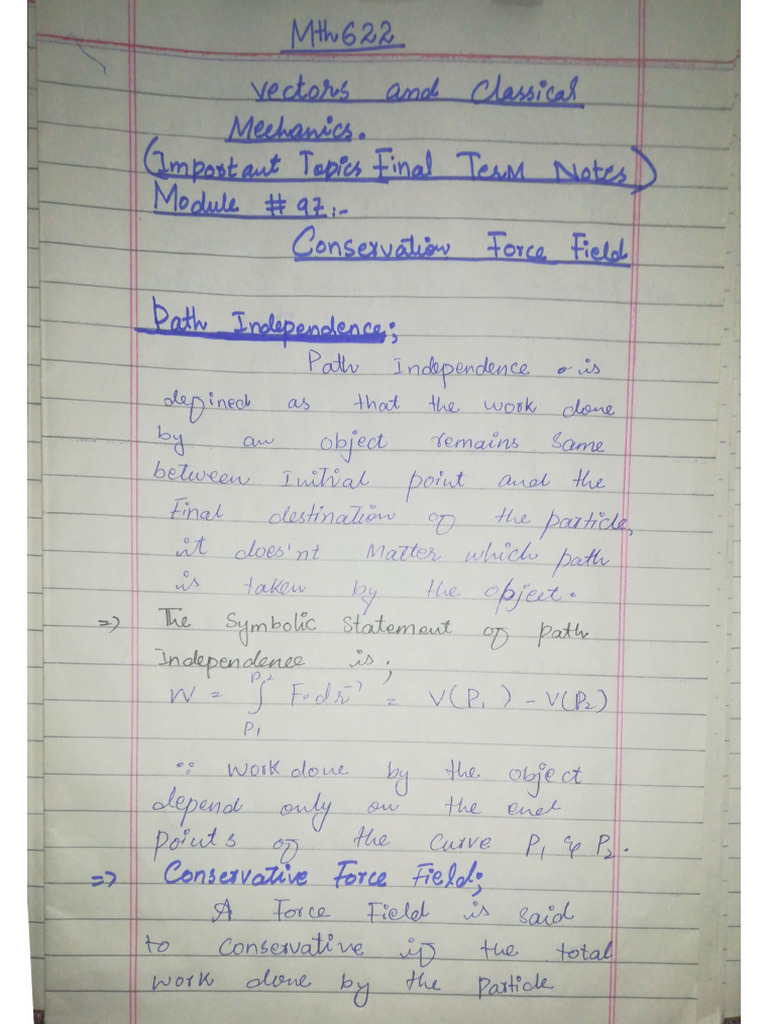 Mth622
Vectors and Classical
Mechanics.
(Important Topics Final Term Notes)
Module # 97:-
Conservation Force Field
Path Independence;
Path Independence is
defined as that the work done
by an object remains same
between Initial point and the
Final destination of the particle,
it does'nt Matter which path
is taken by the object.
=> The Symbolic Statement of path
Independence is;
W = ∫P1P2 F.dr = V(P1) - V(P2)
∵ work done by the object
depend only on the end
points of the curve P1 & P2.
=> Conservative Force Field;
A Force Field is said
to conservative if the total
work done by the Particle